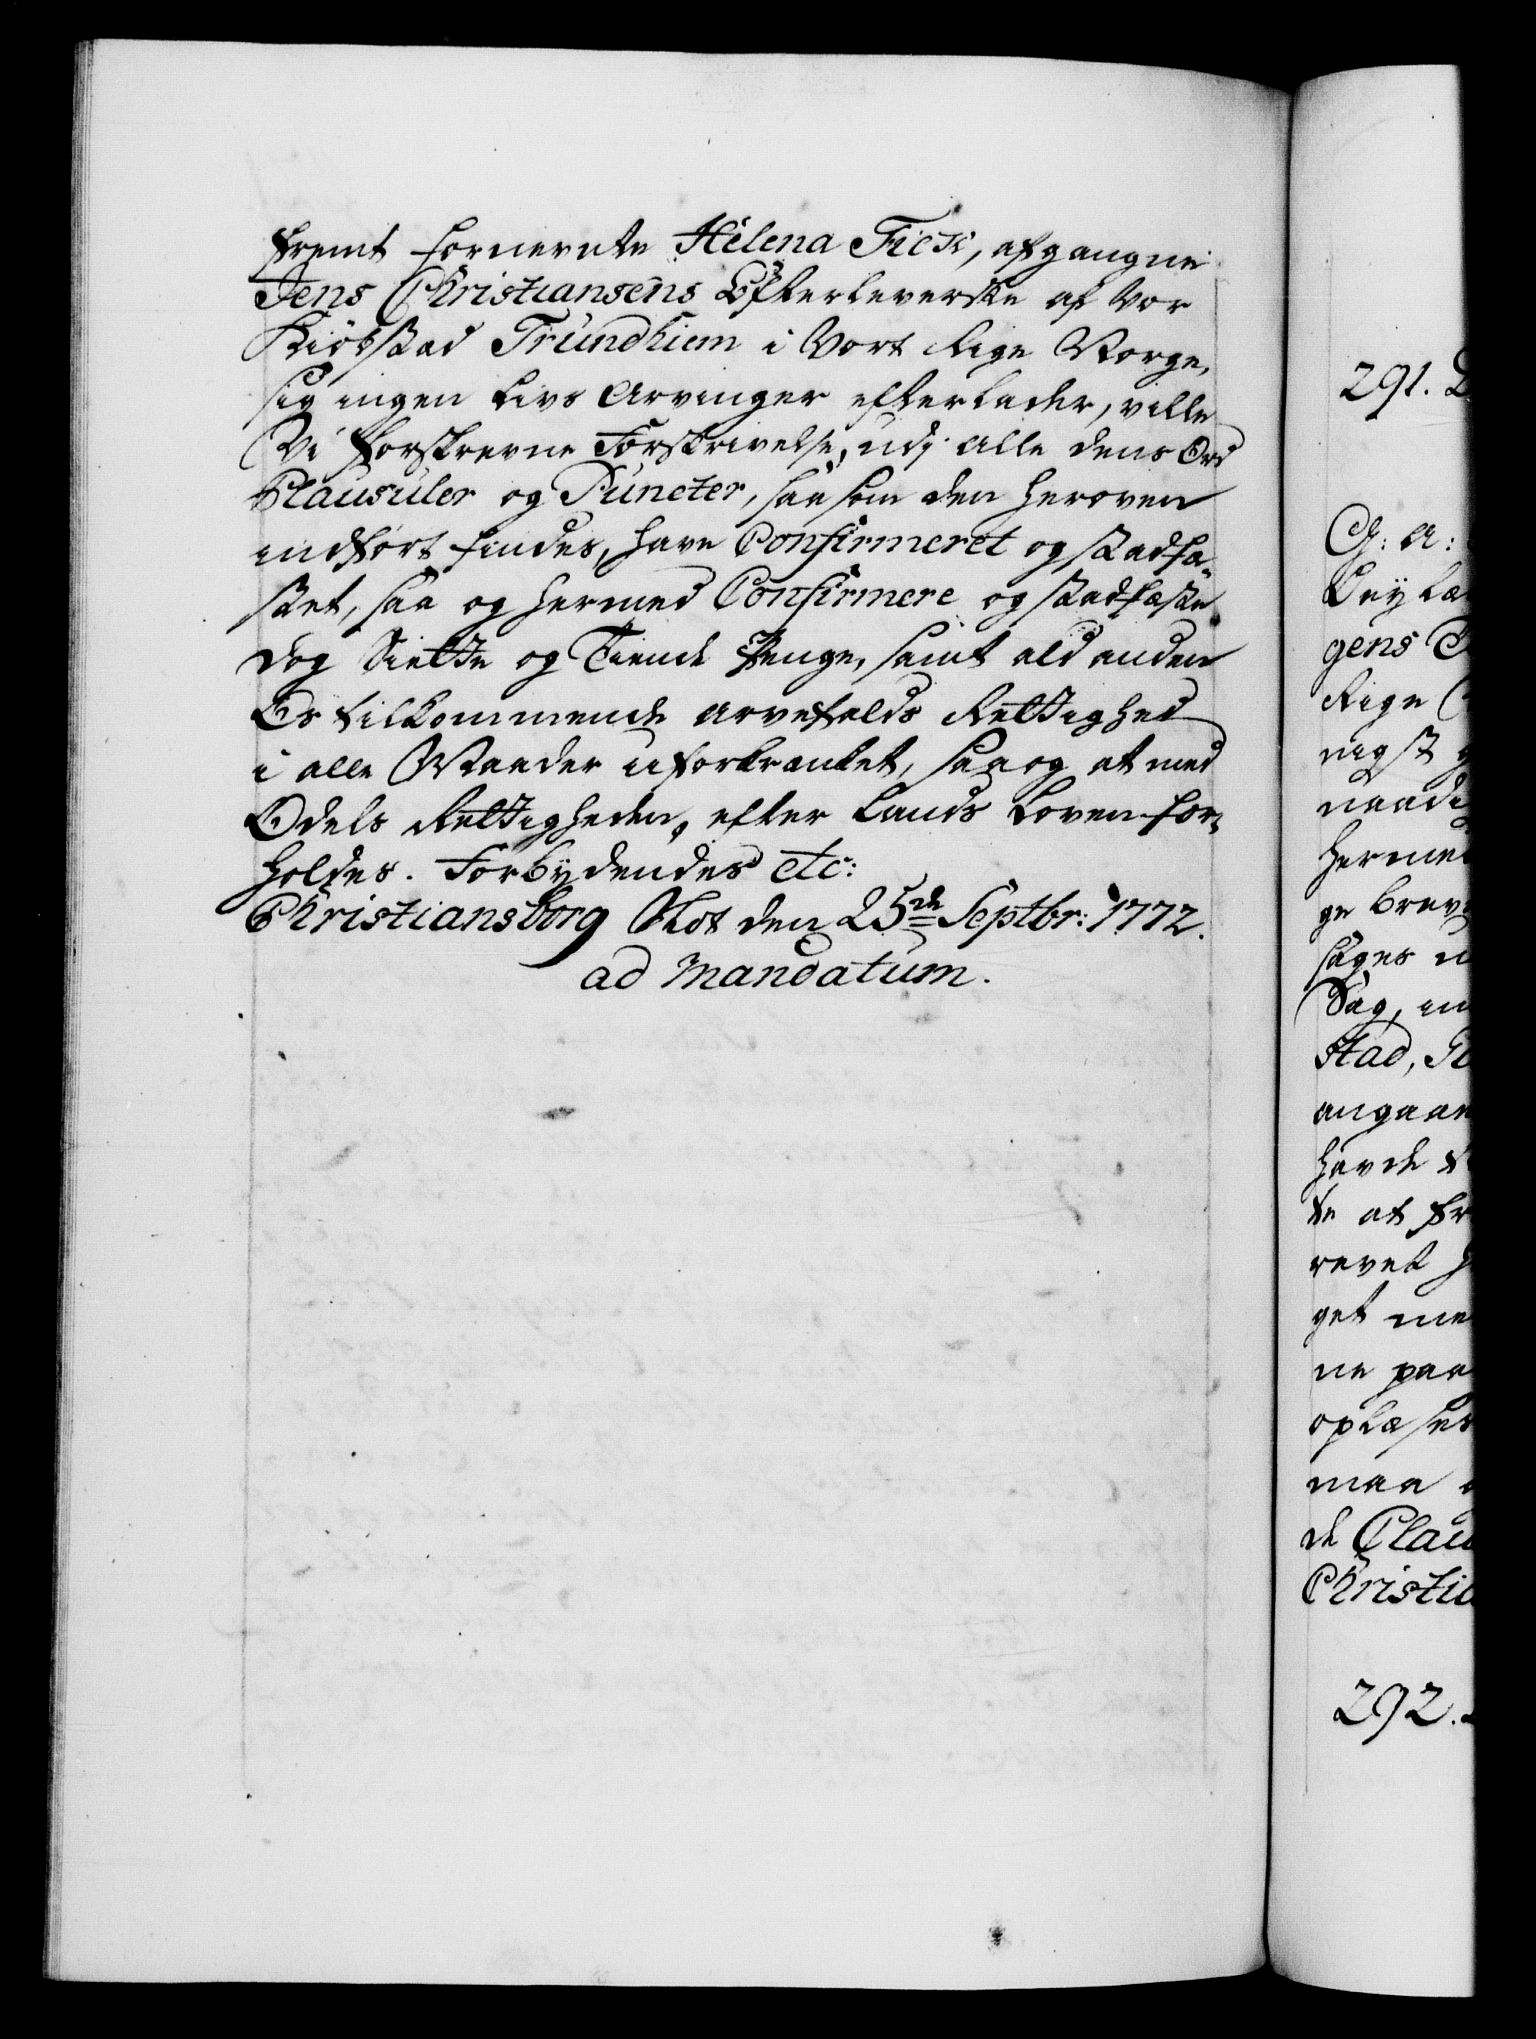 fremt fornevnte Helena Fick, afgangne
Jens Christiansens Efterleverske af Vor
Kiöbstad Trundhiem i Vort Rige Norge,
sig ingen Livs Arvinger efterlader, ville
Vi forskrevne Forskrivelse, udj alle dens Ord
Clausuler og Puncter, saasom den heroven
indfört findes, have Confirmeret og stadfæ-
stet, saa og hermed Confirmere og stadfæste
dog Siette og Tiende Penge, samt ald anden
Os tilkommende Arvefalds Rettighed
i alle Maader uforkrænket, saa og at med
Odels Rettigheden, efter Lands Loven for-
holdes. Forbydendes etc:
Christiansborg Slot den 25de Septbr: 1772.
ad Mandatum.
291.
G: A:
Leylæ
gens
Rige
nigst
naadi
herme
ge brev
Sag, in
stad,
angaae
havde
te at fr
revet
get me
ne paa
oplæses
maa
de Clau
Christia
292.